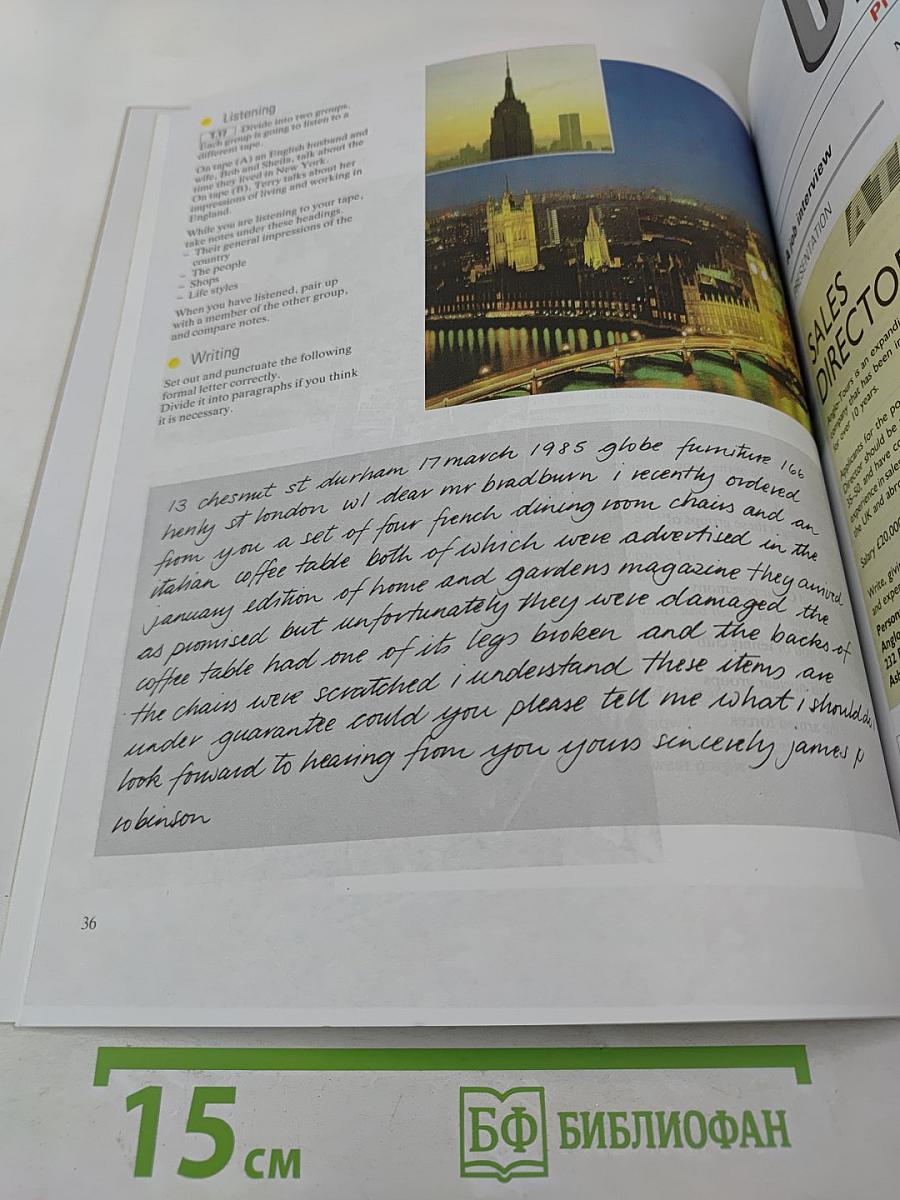 Listening
T.17 Divide into two groups.
Each group is going to listen to a
different tape.
On tape (A) an English husband and
wife, Bob and Sheila, talk about the
time they lived in New York.
On tape (B), Terry talks about her
impressions of living and working in
England.
While you are listening to your tape,
take notes under these headings.
– Their general impressions of the
country
– The people
– Shops
– Life styles
When you have listened, pair up
with a member of the other group,
and compare notes.
Writing
Set out and punctuate the following
formal letter correctly.
Divide it into paragraphs if you think
it is necessary.
13 chesnut st durham 17 march 1985 globe furniture 166
henly st london w1 dear mr bradburn i recently ordered
from you a set of four french dining room chairs and an
italian coffee table both of which were advertised in the
january edition of home and gardens magazine they arrived
as promised but unfortunately they were damaged the
coffee table had one of its legs broken and the backs of
the chairs were scratched i understand these items are
under guarantee could you please tell me what i should do
look forward to hearing from you yours sincerely james p
robinson
36
A job interview
PRESENTATION
SALES
DIRECTOR
is an expanding
company that has been in
for over 10 years.
Applicants for the
Director should be
and have
experience in sales
the UK and
Salary £20,000
Write, giving
and
15 см
БФ БИБЛИОФАН